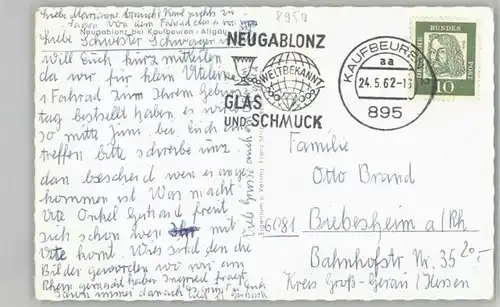 Liebe Marianne brauchst Karl nichts zu
sagen von dem Fahrrad
8950
Neugablonz bei Kaufbeuren / Allgäu
Liebe Schwester Schwager
will Euch kurz mitteilen
da wir für klein Utelein
s Fahrrad zum Ihrem Geburts
tag bestellt haben es wird
so mitte Juni bei Euch ein
treffen bitte schreibe uns
dan bescheid wen es ange
kommen ist Was macht
Ute Onkel Gerhard freut
sich schon wen er mit
Ute kommt. Wies sind den die
Bilder geworden wo wir am
Rhein gemacht haben Ingrid fragt
schon immer danach
NEUGABLONZ
WELTBEKANNT
GLAS
UND SCHMUCK
KAUFBEUREN
aa
24.5.62-
895
DEUTSCHE BUNDESPOST
10
Familie
Otto Brand
(6081) Biebesheim a/Rh
Bahnhofstr Nr. 35
20.-
Kreis Groß-Gerau / Hessen